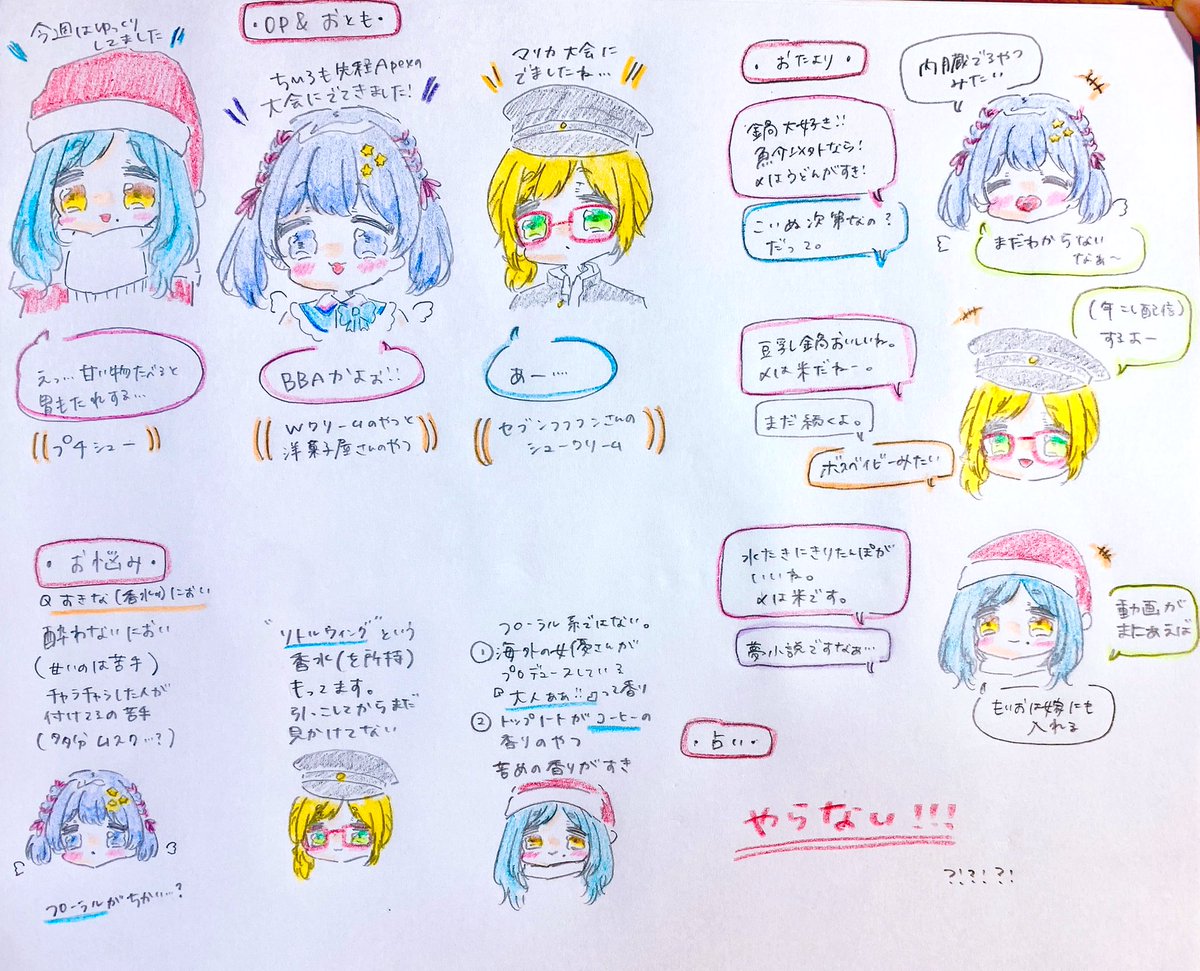 今週はゆっくり
してました
・OP&おとも・
ちいろも先程Apexの
大会にでてきました!
マリカ大会に
でましたね…
えっ…甘い物たべると
胃もたれする…
プチシュー
BBAかよぉ!!
Wクリームのやつと
洋菓子屋さんのやつ
あー…
セブンイレブンさんの
シュークリーム
・お悩み・
Q すきな(香水の)におい
酔わないにおい
(甘いのは苦手)
チャラチャラした人が
付けてるの苦手
(多分ムスク…?)
フローラルがちかい…?
"リトルウィング"という
香水(を所持)
もってます。
引っこしてからまだ
見かけてない
フローラル系ではない。
①海外の女優さんが
プロデュースしている
『大人ぁぁ!!』って香り
②トップノートがコーヒーの
香りのやつ
苦めの香りがすき
・おたより・
鍋大好き!!
魚介以外なら!
〆はうどんがすき!
こいぬ次第なの?
だって。
内臓でるやつ
みたい
まだわからない
なぁ~
豆乳鍋おいしいね。
〆は米だねー。
まだ続くよ。
ボスベイビーみたい
(年こし配信)
するよー
水たきにきりたんぽが
いいね。
〆は米です。
夢小説ですなぁ…
動画が
まにあえば
もぃおは嫁にも
入れる
・占い・
やらない!!!
?!?!?!